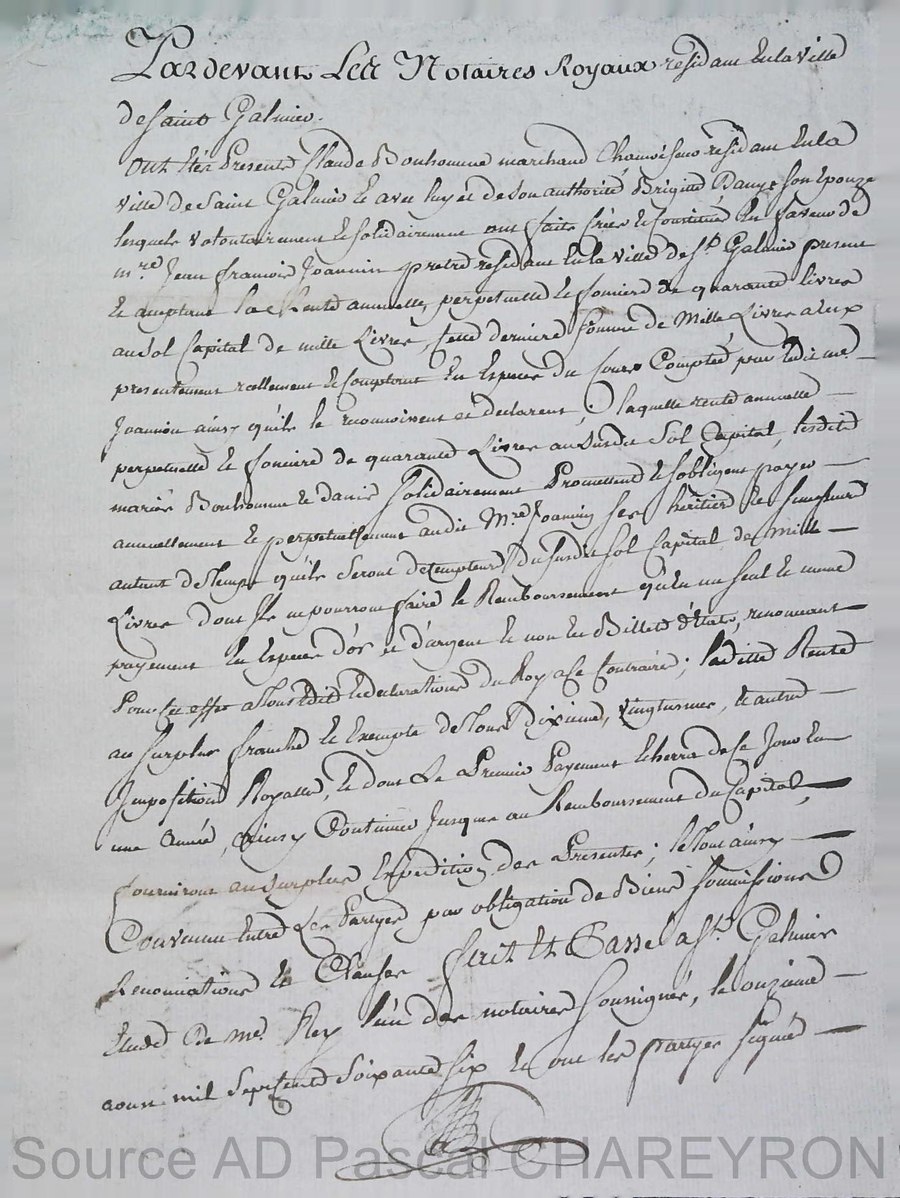 Pardevant Les Notaires Royaux residant En la ville
de Saint Galmier.
Ont Etés Presents Claude Bonhomme marchand Chamoiseur residant En la
ville de Saint Galmier Et avec luy et de son authorité Brigitte Danys son Epouze
lesquels volontairement Et solidairement ont faits Créés Et Constitué En faveur de
mre. Jean francois Joannin pretre residant En la ville de St. Galmier present
Et acceptant la Rente annuelle, perpetuelle Et fonciere de quarante livres
au Sol Capital de mille Livres, Cette derniere somme de Mille Livres a Eux
presentement reellement Et Comptant En Especes du Cours Comptée pour ledit mre.
Joannin ainsy qu'ils le reconnoissent et declarent; laquelle rente annuelle
perpetuelle Et fonciere de quarante Livres au Susdit Sol Capital, lesdits
mariés Bonhomme Et danis Solidairement Promettent Et s'obligent payer
annuellement Et perpetuellement audit Mre. Joannin ses héritiers Et successeurs
autant de temps qu'ils seront detempteurs du susdit sol Capital de Mille
Livres dont Ils ne pourront faire le Remboursement qu'En un seul Et meme
payement En Especes d'or et d'argent Et non En Billets d'Etats, renonceant
Pour Cet effet a tous Edits Et declarations du Roy a Ce Contraire; laditte Rente
au surplus franche Et Exempte de Tous Dixieme, vingtieme, Et autres
Impositions Royalles, Et dont Le Premier Payement Echerra de Ce Jour En
une année, Ainsy Continuer Jusques au Remboursement du Capital,
fourniront au surplus Expedition des Presentes; le Tout ainsy
Convenu Entre Les Partyes, par obligation de Biens soumissions
Renonciations Et Clauses fait Et Passé a St. Galmier
Etude De me. Rey l'un des notaires soussignés, le onzieme
aoust mil Sept Cents Soixante Six Et ont les partyes Signés
Source AD Pascal CHAREYRON